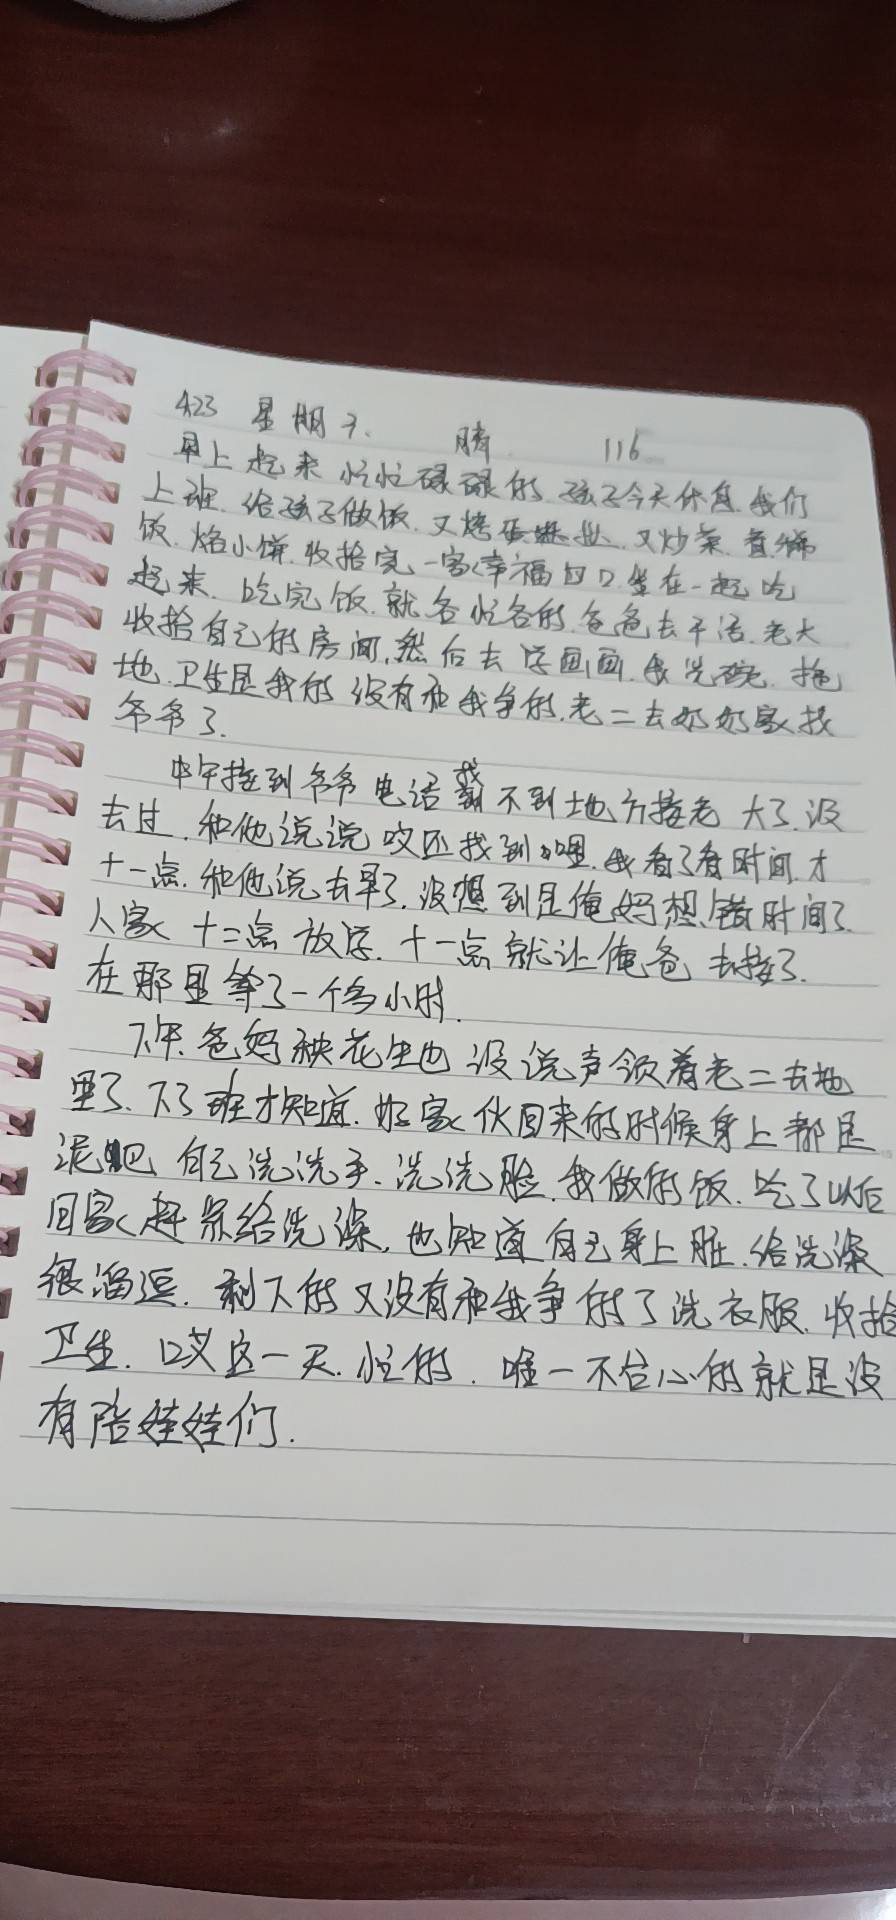 4.23 星期日. 晴. 116
早上起来忙忙碌碌的.孩子今天休息.我们
上班.给孩子做饭.又烤蛋挞.又炒菜.看稀
饭.烙小饼.收拾完一家幸福四口坐在一起吃
起来.吃完饭.就各忙各的.爸爸去干活.老大
收拾自己的房间,然后去学画画.我洗碗.拖
地.卫生是我的没有和我争的.老二去奶奶家找
爷爷了.
中午接到爷爷电话找不到地方接老大了.没
去过.和他说说哎还找到嘿.我看了看时间.才
十一点.和他说去早了.没想到是俺妈想错时间了.
人家十二点放学.十一点就让俺爸去接了.
在那里等了一个多小时.
下午.爸妈秧花生也没说声领着老二去地
里了.下了班才知道.好家伙回来的时候身上都是
泥吧自己洗洗手.洗洗脸.我做的饭.吃了以后
回家赶紧给洗澡,也知道自己身上脏.给洗澡
很溜逗.剩下的又没有和我争的了洗衣服.收拾
卫生.哎这一天.忙的.唯一不合心的就是没
有陪娃娃们.